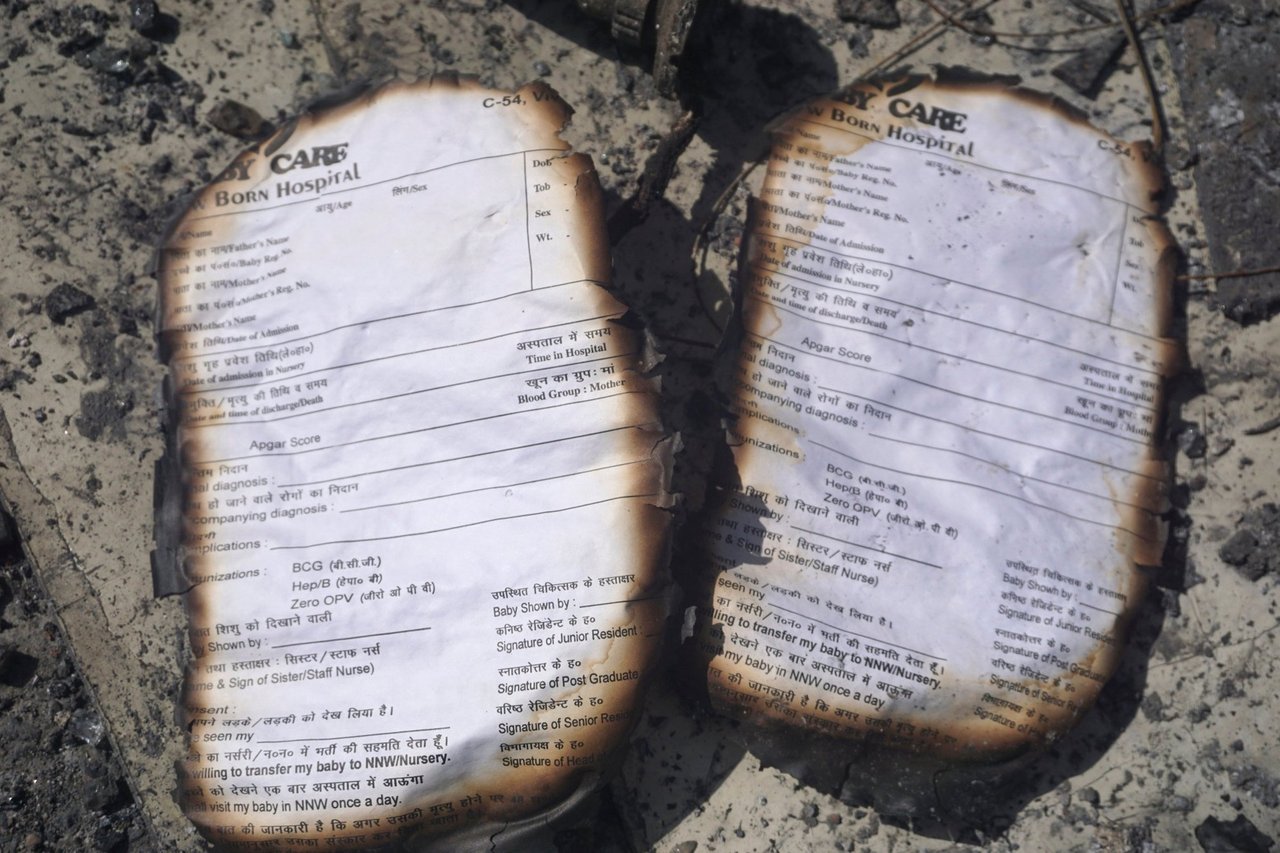 C-54,
CARE
BORN HOSPITAL
Name
आयु/Age
लिंग/Sex
Dob
Tob
Sex
Wt.
का नाम/Father's Name
का पं०सं०/Baby Reg. No.
का नाम/Mother's Name
का पं०सं०/Mother's Reg. No.
/Mother's Name
तिथि/Date of Admission
गृह प्रवेश तिथि(ले०हा०)
Date of admission in Nursery
/मृत्यु की तिथि व समय
Date and time of discharge/Death
अस्पताल में समय
Time in Hospital
खून का ग्रुप: मां
Blood Group : Mother
Apgar Score
निदान
diagnosis :
हो जाने वाले रोगों का निदान
companying diagnosis :
mplications :
unizations :
BCG (बी.सी.जी.)
Hep/B (हेपा० बी)
Zero OPV (जीरो ओ पी वी)
शिशु को दिखाने वाली
Shown by :
तथा हस्ताक्षर : सिस्टर/स्टाफ नर्स
& Sign of Sister/Staff Nurse)
उपस्थित चिकित्सक के हस्ताक्षर
Baby Shown by :
कनिष्ठ रेजिडेन्ट के ह०
Signature of Junior Resident
स्नातकोत्तर के ह०
Signature of Post Graduate
वरिष्ठ रेजिडेन्ट के ह०
Signature of Senior
विभागाध्यक्ष के ह०
Signature of Head
sent :
लड़के/लड़की को देख लिया है।
seen my
का नर्सरी/न०न० में भर्ती की सहमति देता हूँ।
willing to transfer my baby to NNW/Nursery.
को देखने एक बार अस्पताल में आऊंगा
visit my baby in NNW once a day.
की जानकारी है कि अगर उसकी मृत्यु होने पर
उसका संस्कार कर
CARE
BORN HOSPITAL
C-54,
Name
आयु/Age
लिंग/Sex
Tob
Sex
Wt.
का नाम/Father's Name
का पं०सं०/Baby Reg. No.
का नाम/Mother's Name
का पं०सं०/Mother's Reg. No.
/Mother's Name
प्रवेश तिथि/Date of Admission
शिशु गृह प्रवेश तिथि(ले०हा०)
Date of admission in Nursery
/मृत्यु की तिथि व समय
Date and time of discharge/Death
अस्पताल में समय
Time in Hospital
खून का ग्रुप: मां
Blood Group : Mother
Apgar Score
निदान
diagnosis :
हो जाने वाले रोगों का निदान
companying diagnosis :
mplications :
unizations :
BCG (बी.सी.जी.)
Hep/B (हेपा० बी)
Zero OPV (जीरो ओ पी वी)
शिशु को दिखाने वाली
Shown by :
तथा हस्ताक्षर : सिस्टर/स्टाफ नर्स
& Sign of Sister/Staff Nurse)
उपस्थित चिकित्सक के हस्ताक्षर
Baby Shown by :
कनिष्ठ रेजिडेन्ट के ह०
Signature of Junior
स्नातकोत्तर के ह०
Signature of Post
वरिष्ठ रेजिडेन्ट के ह०
Signature of Senior
विभागाध्यक्ष के ह०
Signature of
लड़के/लड़की को देख लिया है।
seen my
का नर्सरी/न०न० में भर्ती की सहमति देता हूँ।
willing to transfer my baby to NNW/Nursery.
को देखने एक बार अस्पताल में आऊंगा
visit my baby in NNW once a day.
की जानकारी है कि अगर उसकी मृत्यु होने
उसका संस्कार